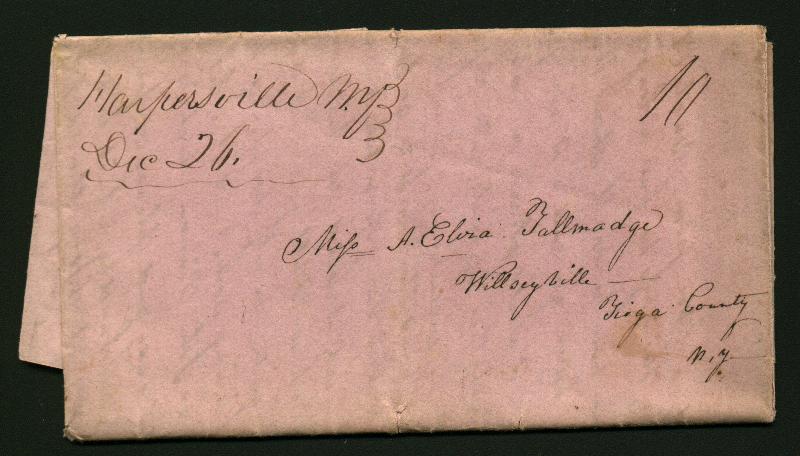 Harpersville N.Y.
10
Dec 26.
Miss A. Elvia Tallmadge
Willseyville
Tioga County
N.Y.